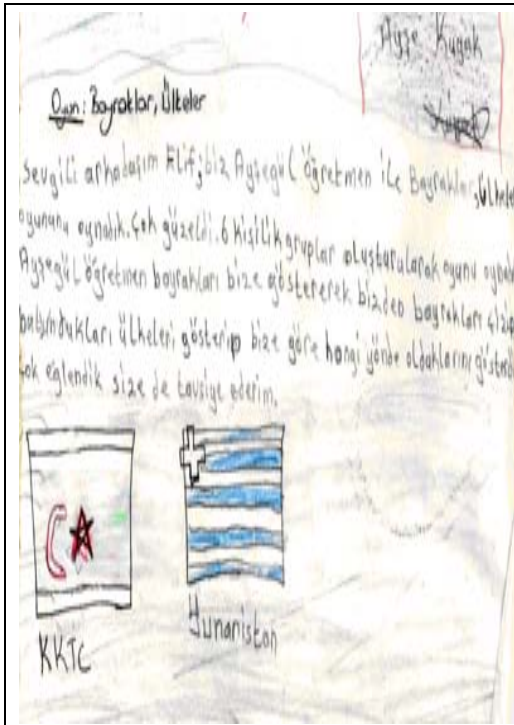 Ayşe Kuşak
Oyun: Bayraklar, Ülkeler
Sevgili arkadaşım Elif; biz Ayşegül öğretmen ile Bayraklar, Ülkeler
oyununu oynadık. Çok güzeldi. 6 kişilik gruplar oluşturularak oyunu
Ayşegül öğretmen bayrakları bize göstererek bizden bayrakları çizip
bulundukları ülkeleri gösterip bize göre hangi yönde olduklarını
çok eğlendik size de tavsiye ederim.
KKTC
Yunanistan